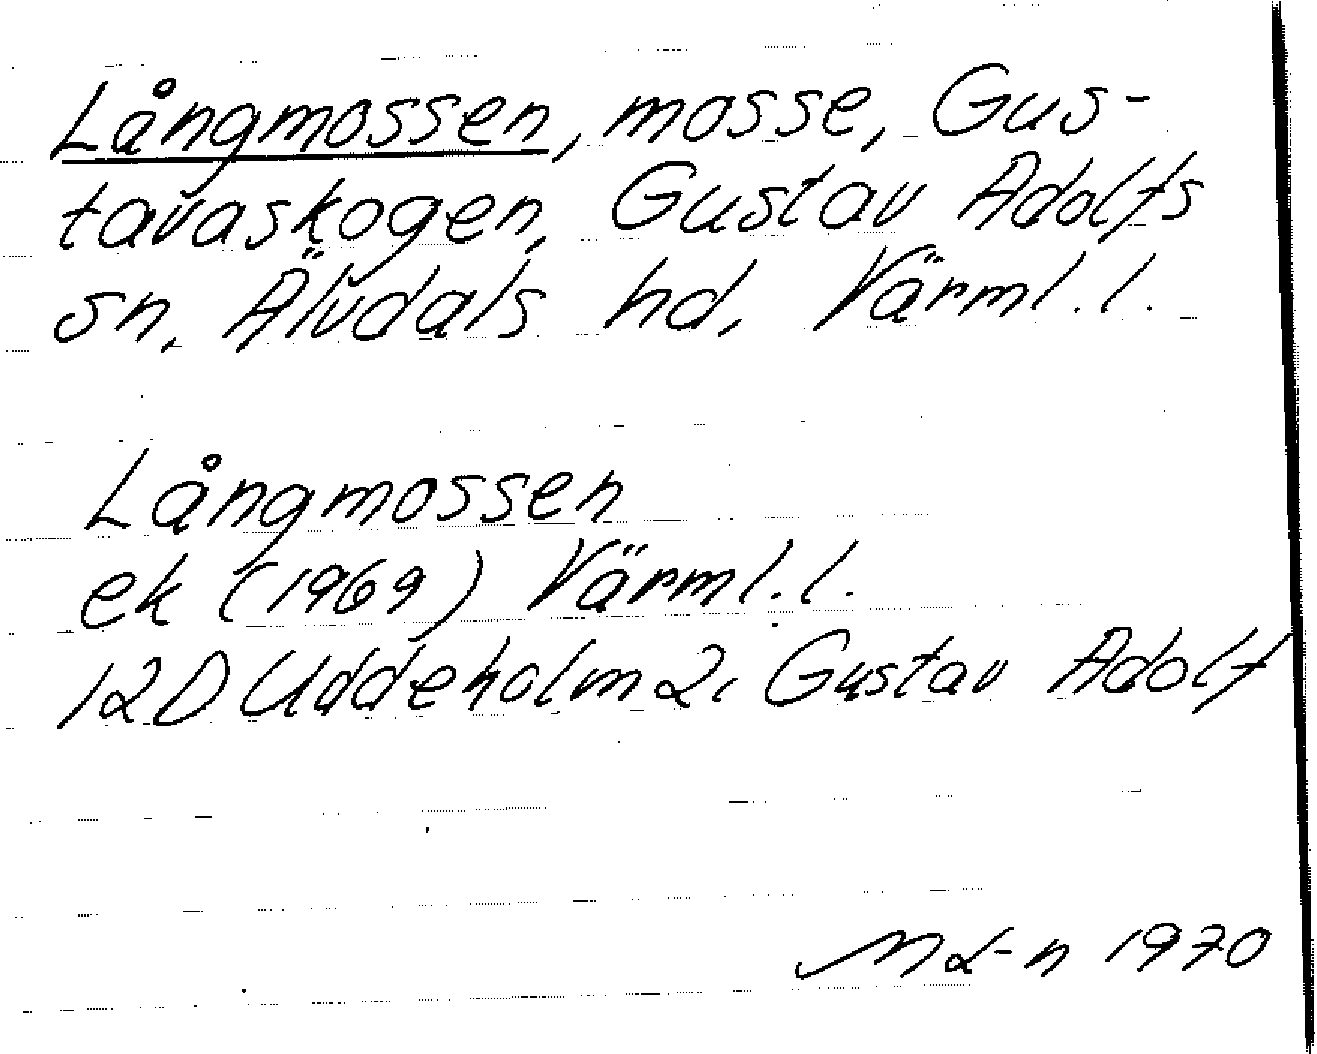 Långmossen, mosse, Gus-
tavaskogen, Gustav Adolfs
sn, Älvdals hd, Värml. l.
Långmossen
ek (1969) Värml. l.
12D Uddeholm 2, Gustav Adolf
1970